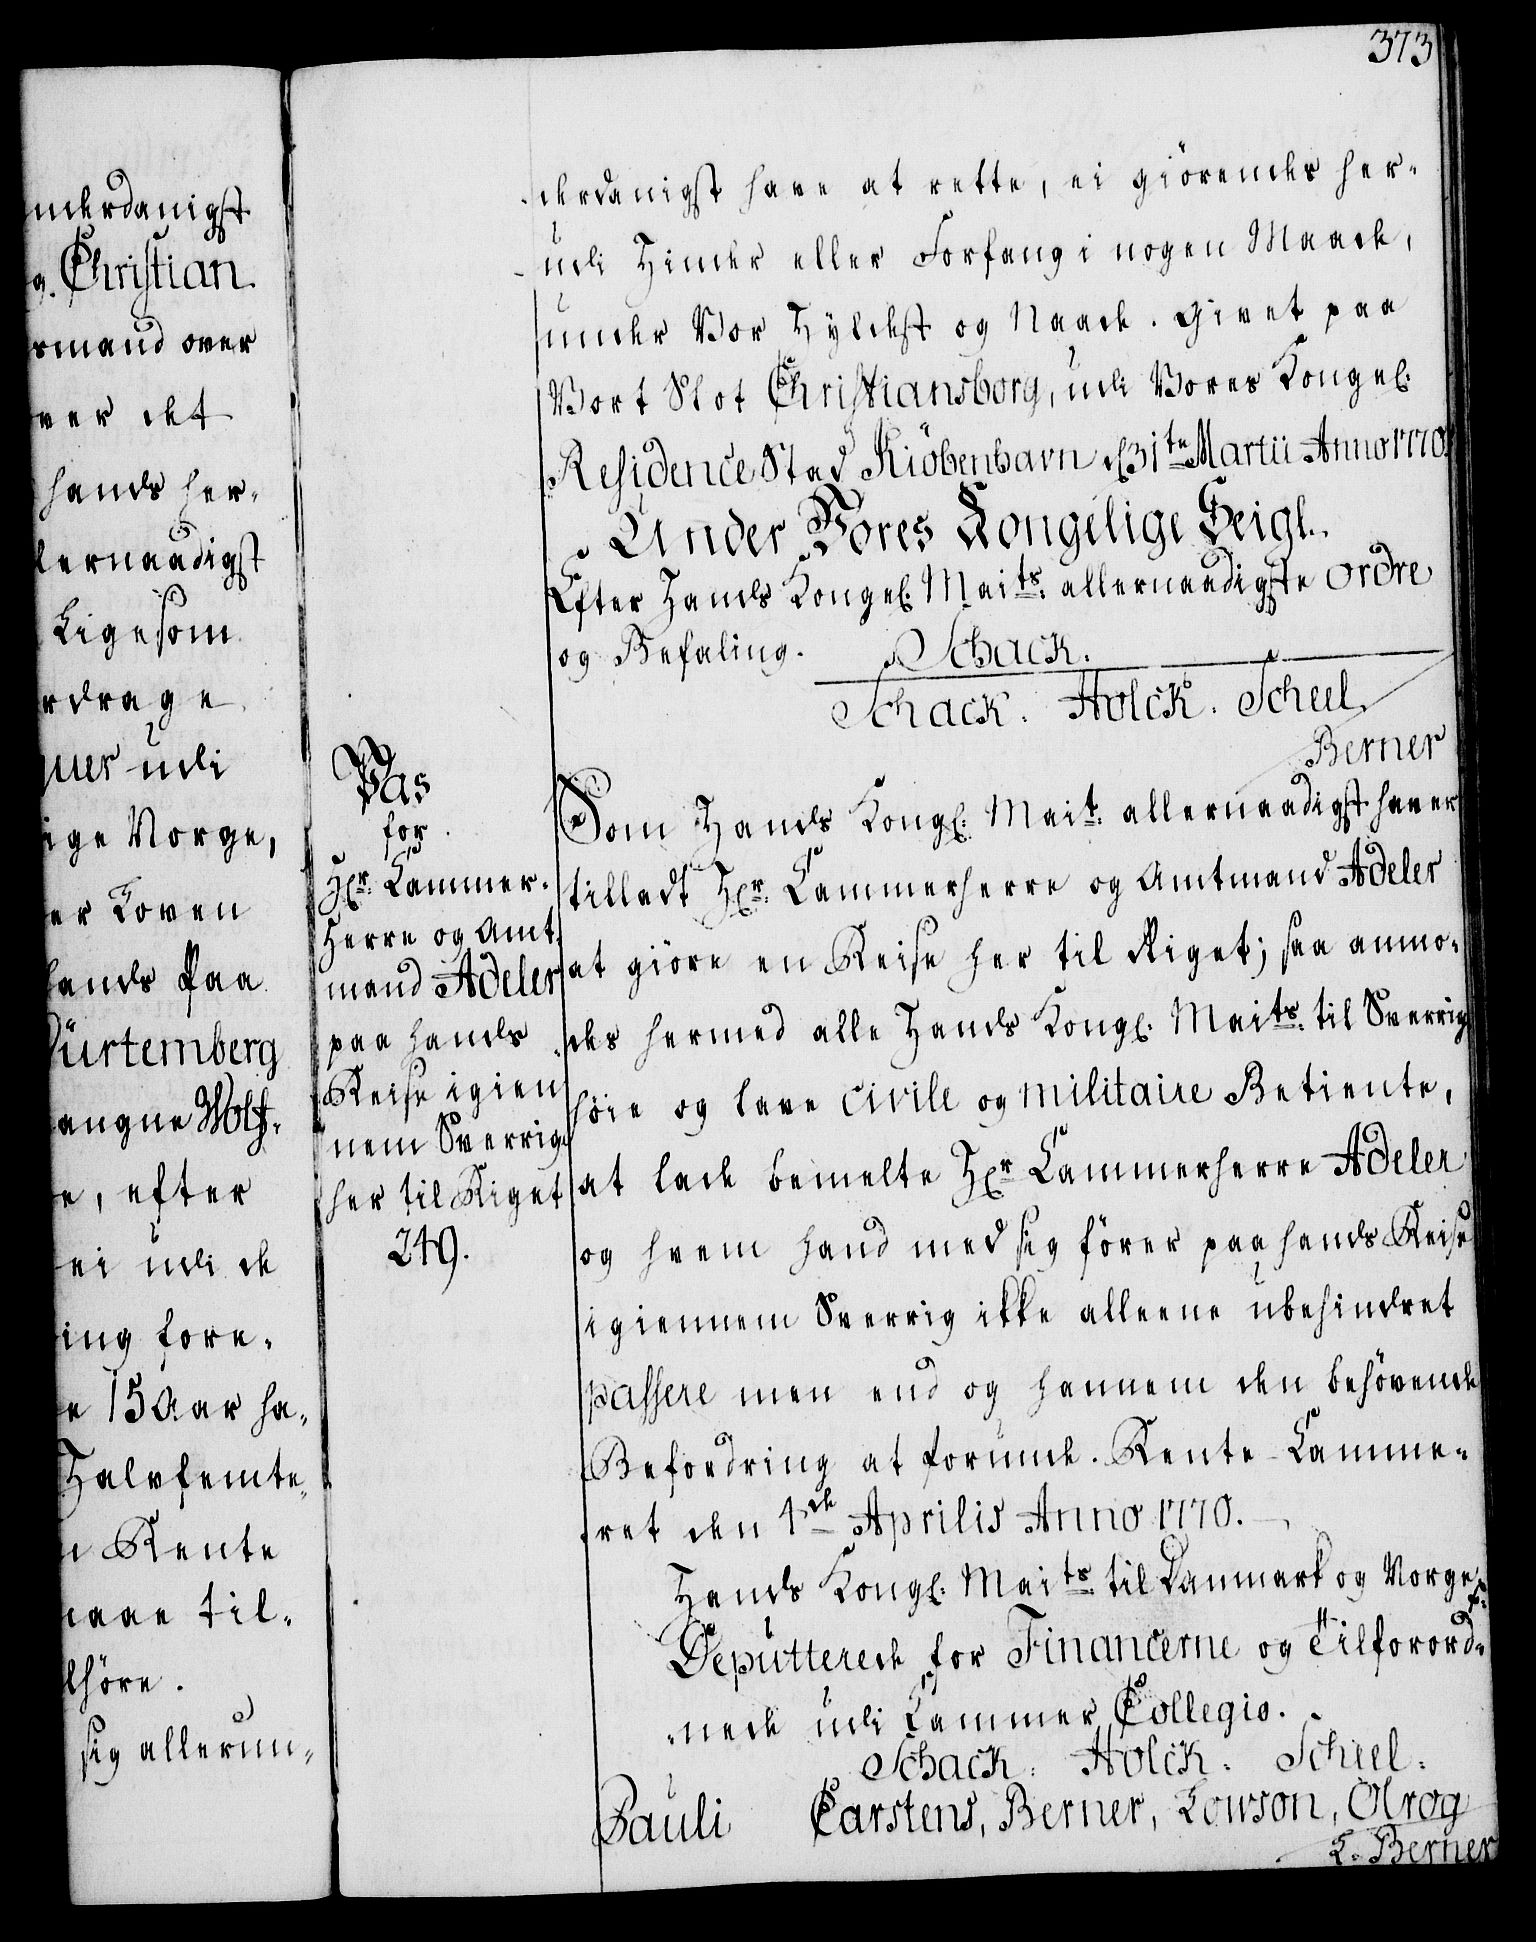 373
nderdanigst
g. Christian
smand over
ver det
hands her-
lernaadigst
Ligesom
rdrage
quer udi
ige Norge,
er Loven
lands Paa
Würtemberg
angne Wolf-
e, efter
ei udi de
ing fore-
e 15 Aar ha-
Halvfemte-
n Rente
maae til-
lhöre.
sig allerun-
derdanigst have at rette, ei giörendes her-
udi Hinder eller Forfang i nogen Maade,
under Vor Hyldest og Naade. Givet paa
Vort Slot Christiansborg, udi Vores Kongel.
Residence Stad Kiöbenhavn d. 31te Martii Anno 1770.
Under Vores Kongelige Seigl.
Efter Hands Kongel. Maits. allernaadigste Ordre
og Befaling. Schack.
Schack. Holck. Scheel.
Berner
Pas
for
Hr. Cammer-
Herre og Amt-
mand Adeler
paa hands
Reise igien-
nem Sverrig
her til Riget
249.
Som Hands Kongl. Mait. allernaadigst haver
tilladt Hr. Cammerherre og Amtmand Adeler
at giöre en Reise her til Riget; saa anmo-
des hermed alle Hands Kongl. Maits. til Sverrig
höie og lave civile og militaire Betiente,
at lade bemelte Hr. Cammerherre Adeler
og hvem hand med sig förer paa hands Reise
igiennem Sverrig ikke alleene ubehindret
passere men end og hannem den behövende
Befordring at forunde. Rente-Camme-
ret den 4de Aprilis Anno 1770.
Hands Kongl. Maits til Danmark og Norge p.
Deputterede for Financerne og Tilforord-
nede udi Cammer Collegio.
Schack. Holck. Scheel.
Pauli Carstens, Berner, Lowson, Olrog
L. Berner